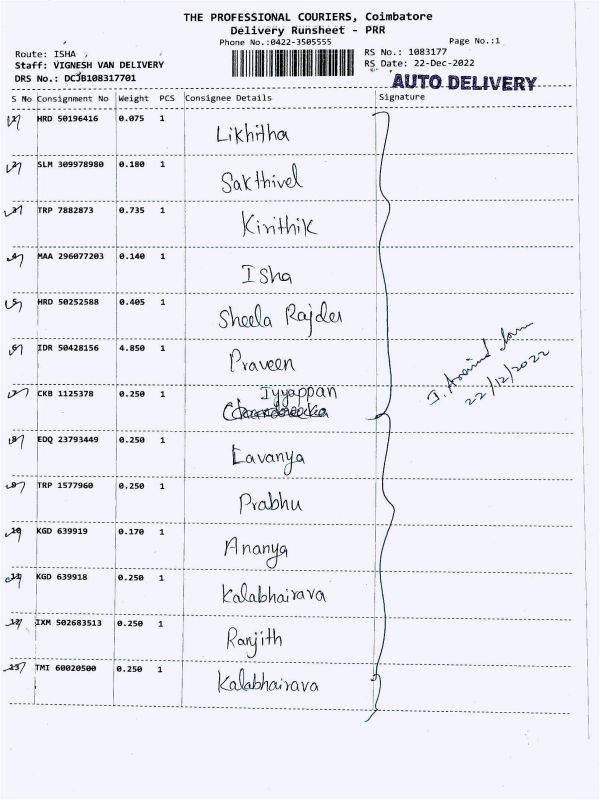 THE PROFESSIONAL COURIERS, Coimbatore
Delivery Runsheet - PRR
Phone No.:0422-3505555 Page No.:1
Route: ISHA RS No.: 1083177
Staff: VIGNESH VAN DELIVERY RS Date: 22-Dec-2022
DRS No.: DCJB108317701 AUTO DELIVERY
S No Consignment No Weight PCS Consignee Details Signature
1 HRD 50196416 0.075 1 Likhitha
2 SLM 309978980 0.180 1 Sakthivel
3 TRP 7882873 0.735 1 Kirithik
4 MAA 296077203 0.140 1 Isha
5 HRD 50252588 0.405 1 Sheela Rajder
6 IDR 50428156 4.850 1 Praveen
7 CKB 1125378 0.250 1 Iyyappan
8 EDQ 23793449 0.250 1 Lavanya
9 TRP 1577960 0.250 1 Prabhu
10 KGD 639919 0.170 1 Ananya
11 KGD 639918 0.250 1 Kalabhairava
12 IXM 502683513 0.250 1 Ranjith
13 TMI 60020500 0.250 1 Kalabhairava
22/12/2022